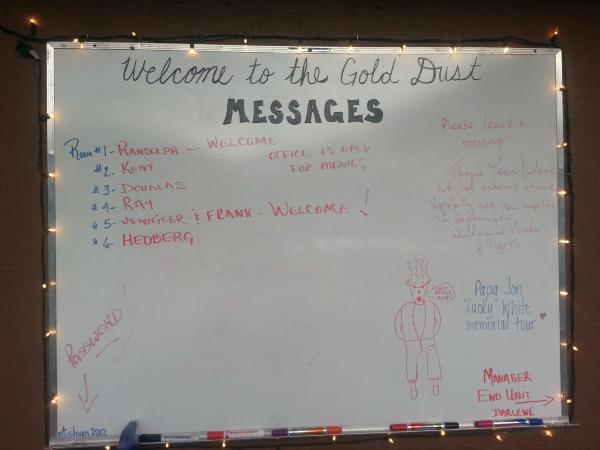 Welcome to the Gold Dust
MESSAGES
Room #1- RANDOLPH - WELCOME
OFFICE IS OPEN
FOR MOVIES
#2- KENT
#3- DOUGLAS
#4- RAY
#5- JENNIFER & FRANK - WELCOME!
#6- HEDBERG
Please leave a
message!
Thank You Darlene
We had awesome
Hopefully see you again
in September
& Tigers
Papa Jon
"Lucky" White
memorial tour
PASSWORD
MANAGER
END UNIT
DARLENE